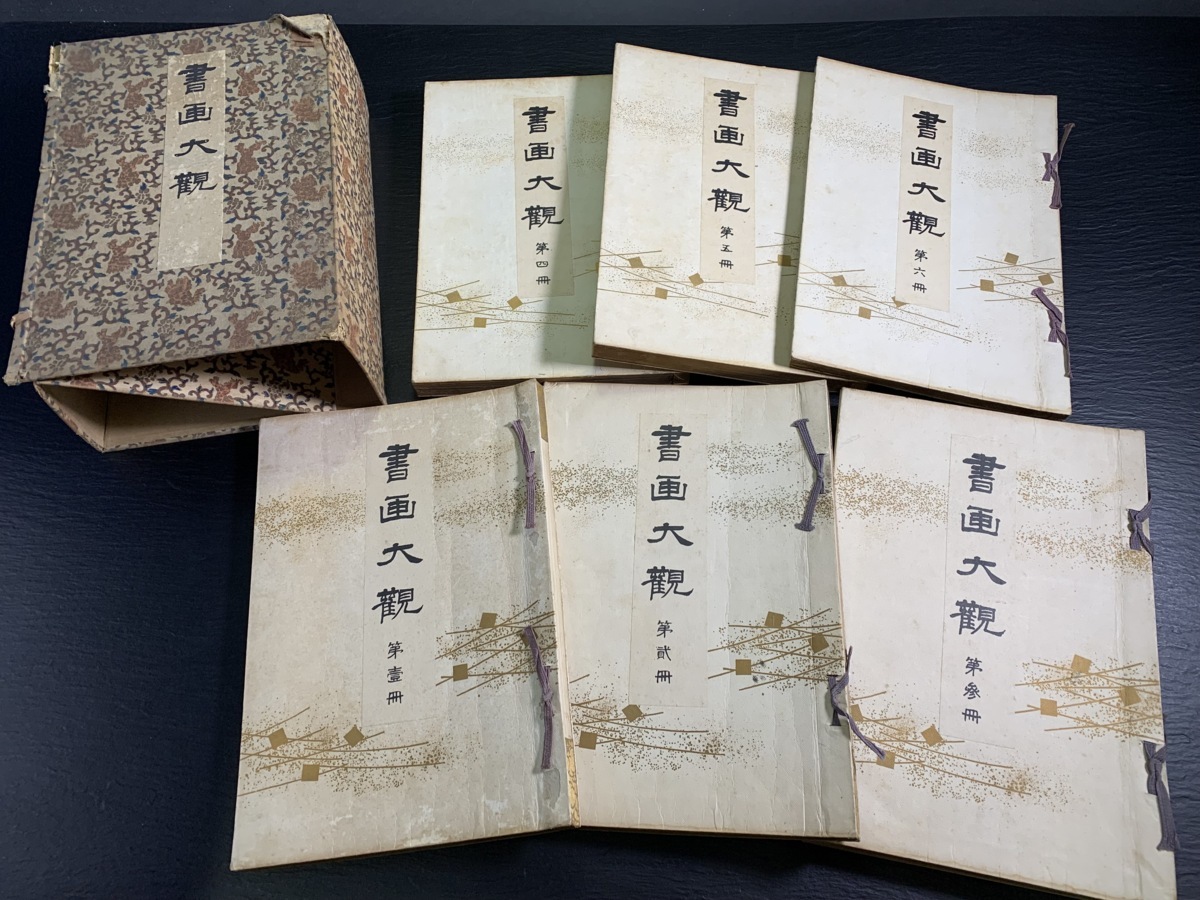 書画大觀
書画大觀
第四冊
書画大觀
第五冊
書画大觀
第六冊
書画大觀
第壹冊
書画大觀
第貳冊
書画大觀
第參冊